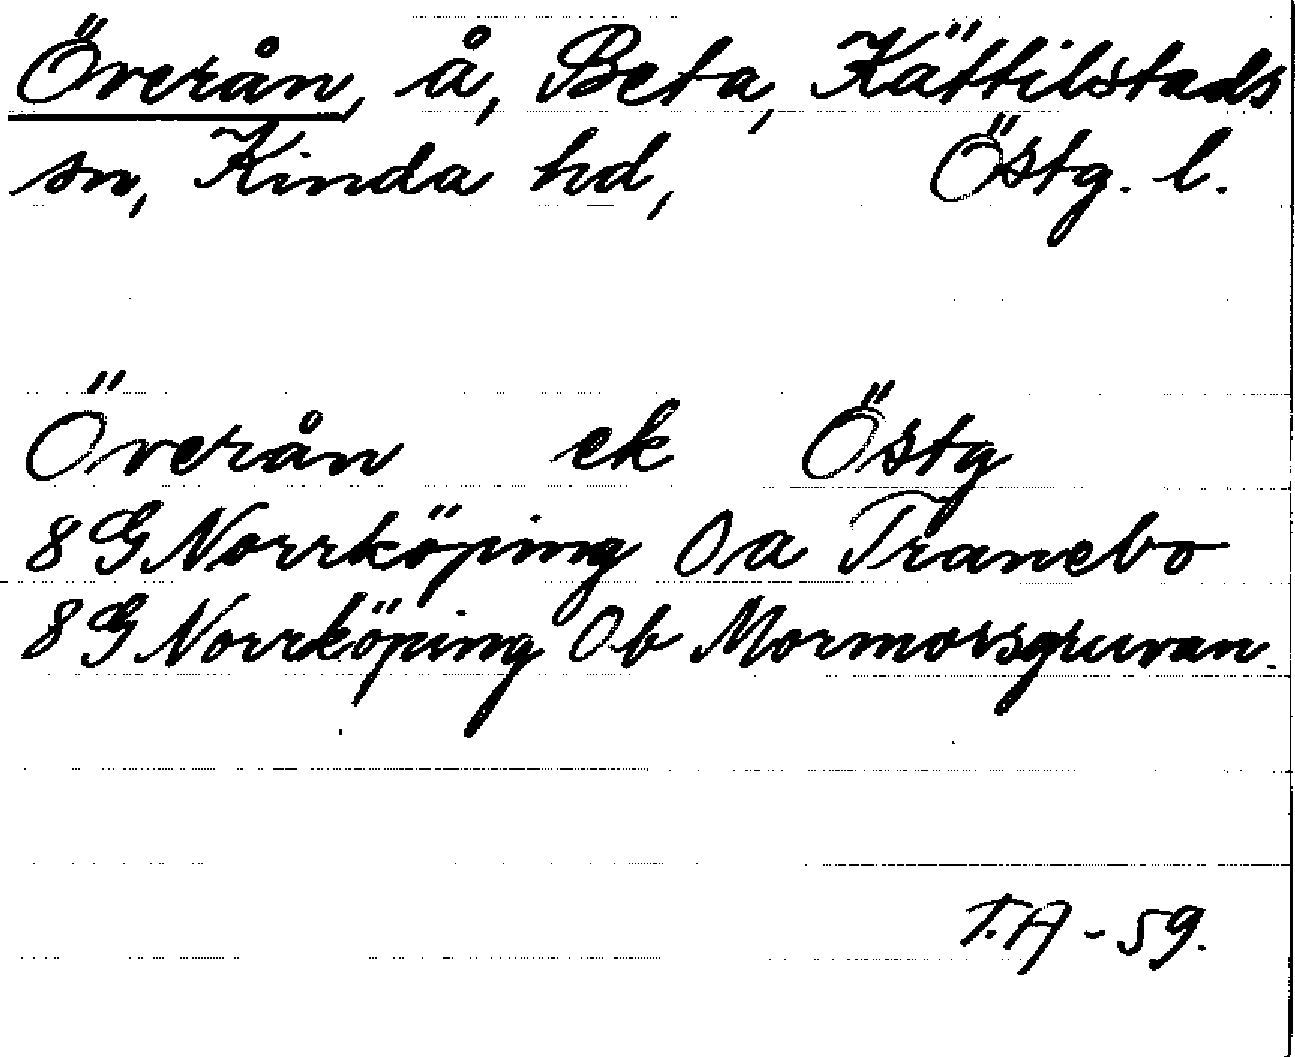 Överån, å, Beta, Kättilstads
sn, Kinda hd, Östg. l.
Överån ek Östg
8G Norrköping 0a Tranebo
8G Norrköping 0b Mormorsgruvan.
T.A - 59.